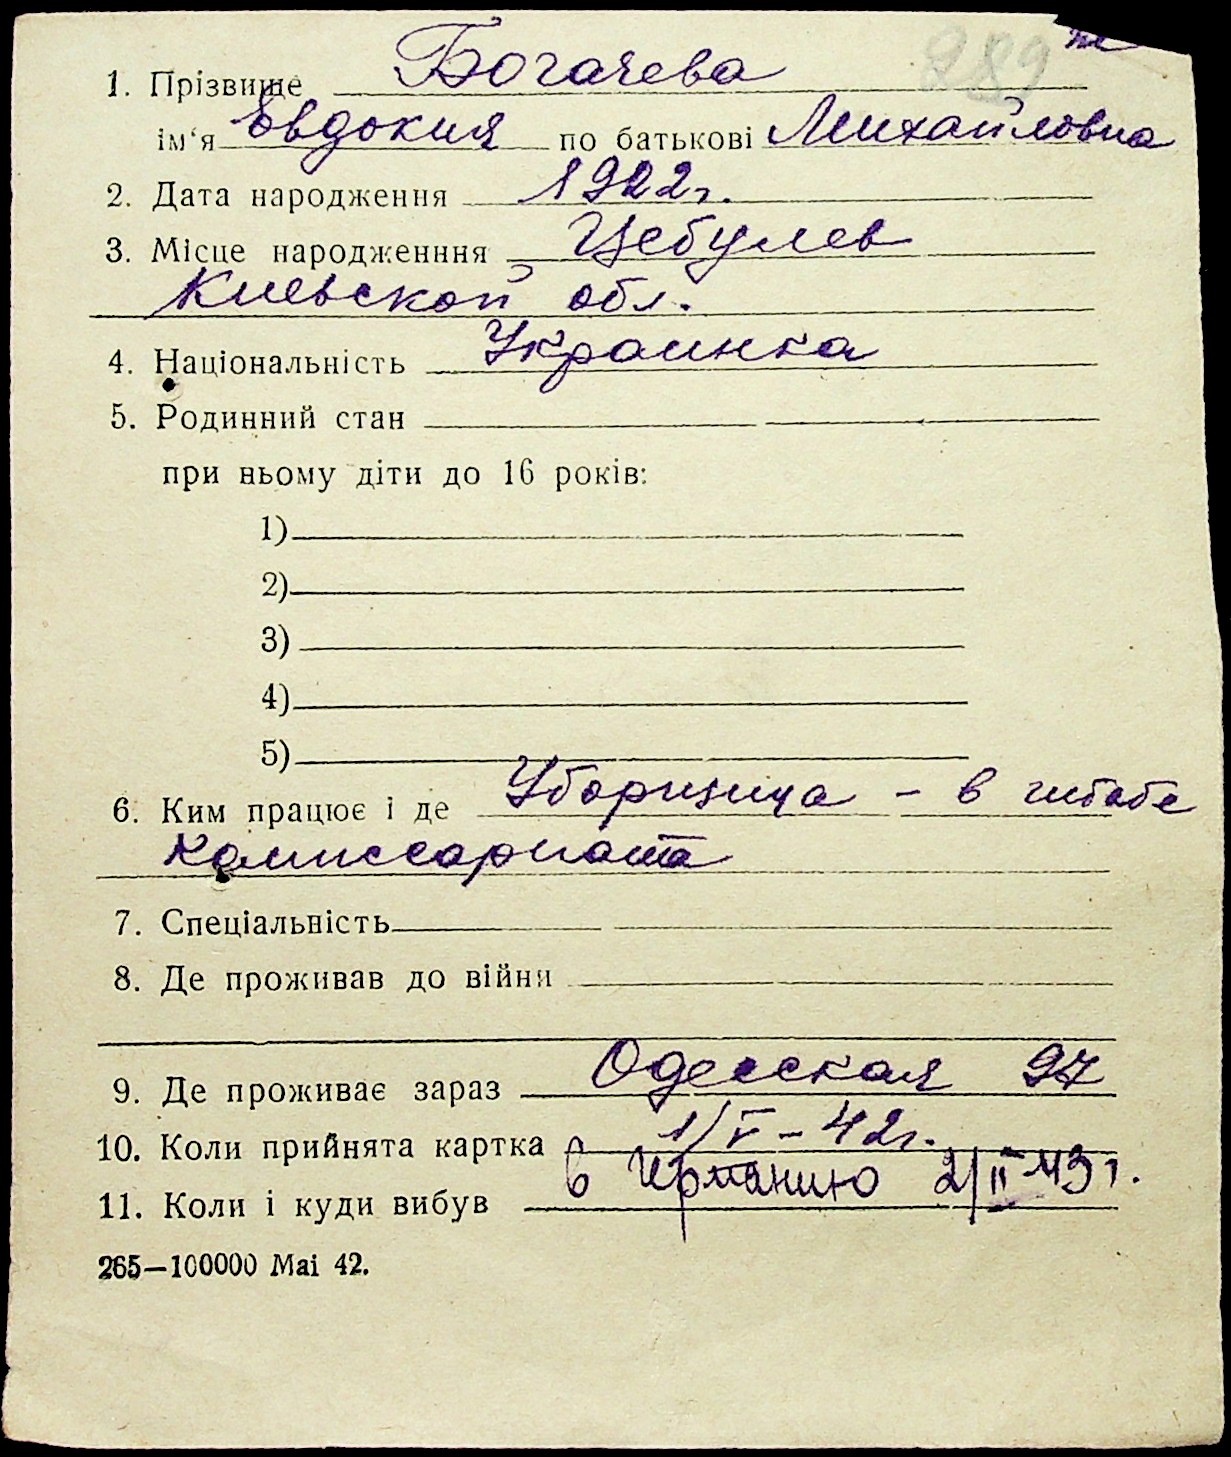 289
1. Прізвище Богачева
ім‘я Евдокия по батькові Михайловна
2. Дата народження 1922г.
3. Місце народженння Цебулев
Киевской обл.
4. Національність Украинка
5. Родинний стан
при ньому діти до 16 років:
1)
2)
3)
4)
5)
6. Ким працює і де Уборщица – в
Комиссариата
7. Спеціальність
8. Де проживав до війни
9. Де проживає зараз Одесская 97
10. Коли прийнята картка 1/V – 42г.
11. Коли і куди вибув в Германию 2/II 43г.
265—100000 Маі 42.